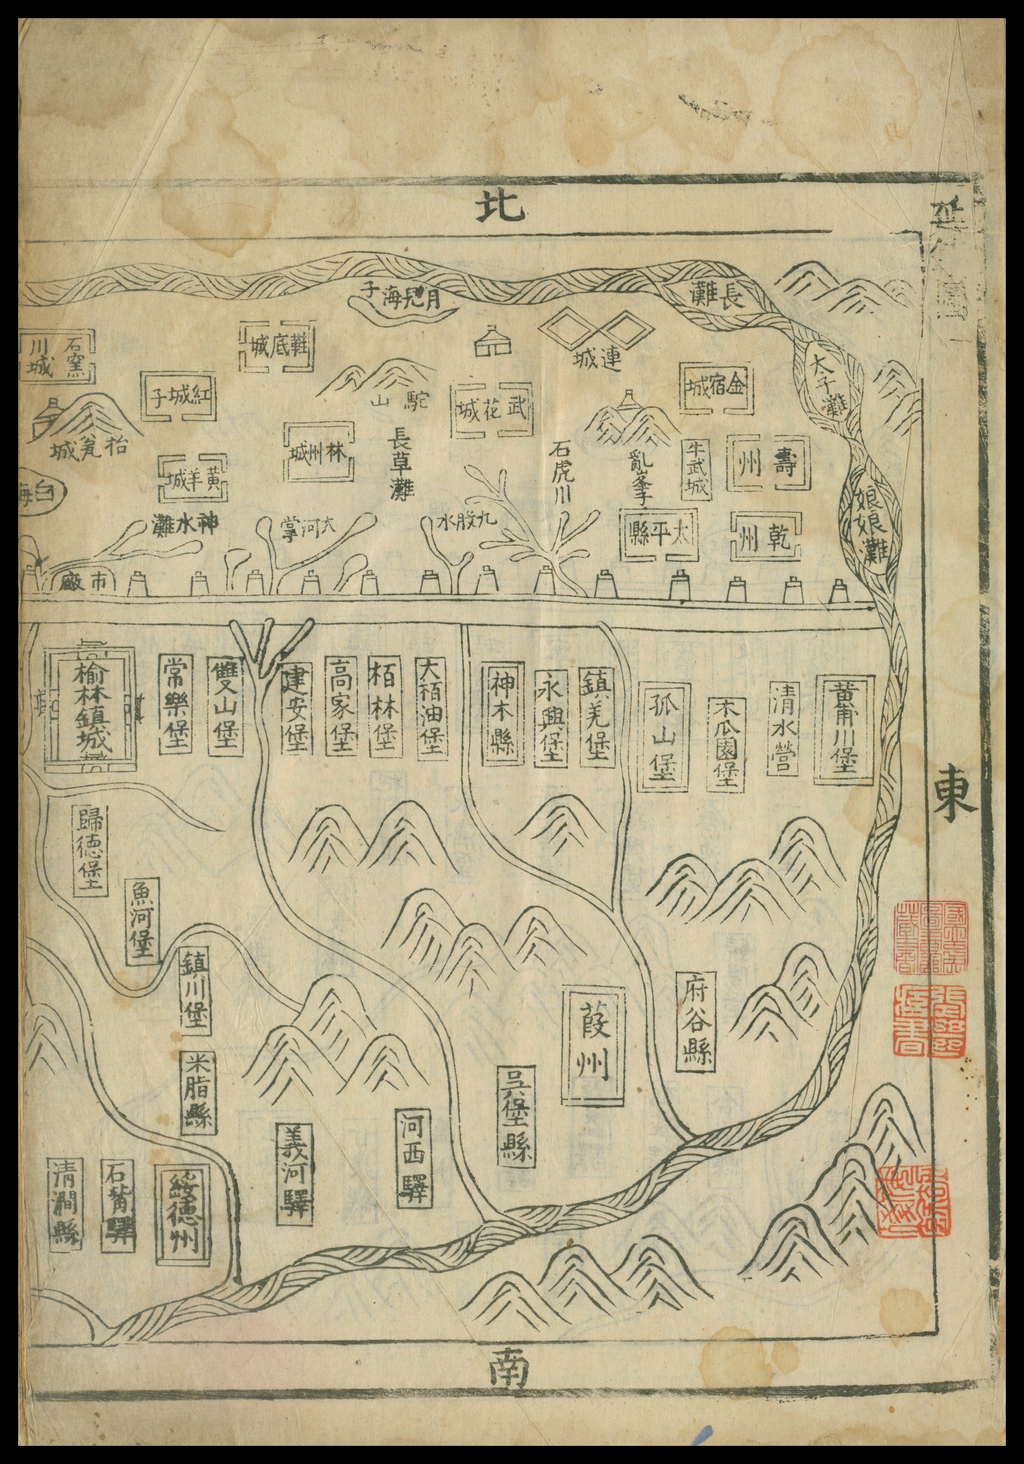 北
東
南
長灘
太子灘
娘娘灘
月兒海子
連城
鞋底城
石窑川城
紅城子
駝山
武花城
金宿城
枱瓮城
林州城
長草灘
石虎川
亂峯子
牛武城
壽州
黃羊城
神水灘
大河掌
九股水
太平縣
乾州
市廠
黄甫川堡
清水營
木瓜園堡
孤山堡
鎮羌堡
永興堡
神木縣
大栢油堡
栢林堡
高家堡
建安堡
雙山堡
常樂堡
榆林鎮城
歸德堡
魚河堡
鎮川堡
米脂縣
府谷縣
葭州
吳堡縣
河西驛
義河驛
綏德州
清澗縣